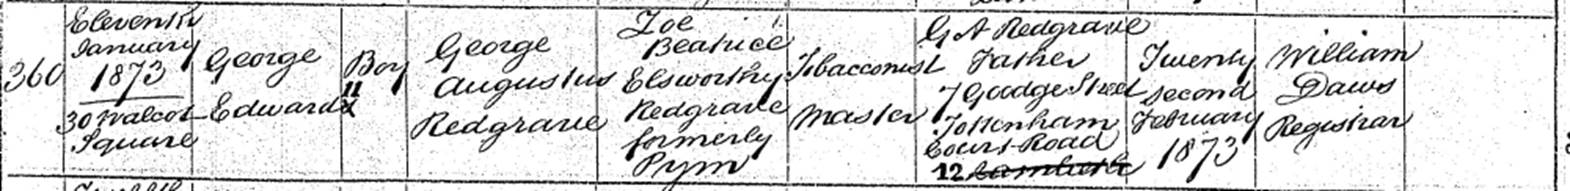 360
Eleventh
January
1873
30 Walcot
Square
George
Edward
Boy
George
Augustus
Redgrave
Zoe
Beatrice
Elsworthy
Redgrave
formerly
Pym
Tobacconist
Master
G A Redgrave
Father
7 Goodge Street
Tottenham
Court Road
12
Twenty
second
February
1873
William
Daws
Registrar